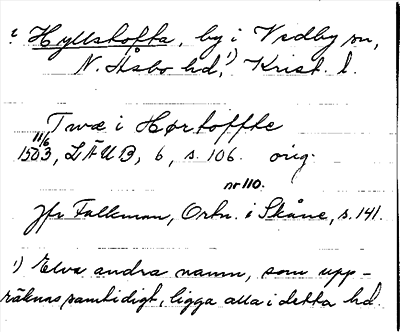 ? Hyllstofta, by i Vedby sn,
N. Åsbo hd,¹) Krist. l.
Twæ i Hørtoffthe
11/6
1503, LÄUB, 6, s. 106. orig.
nr 110.
Jfr Falkman, Ortn. i Skåne, s. 141.
¹) Elva andra namn, som upp-
räknas samtidigt, ligga alla i detta hd.